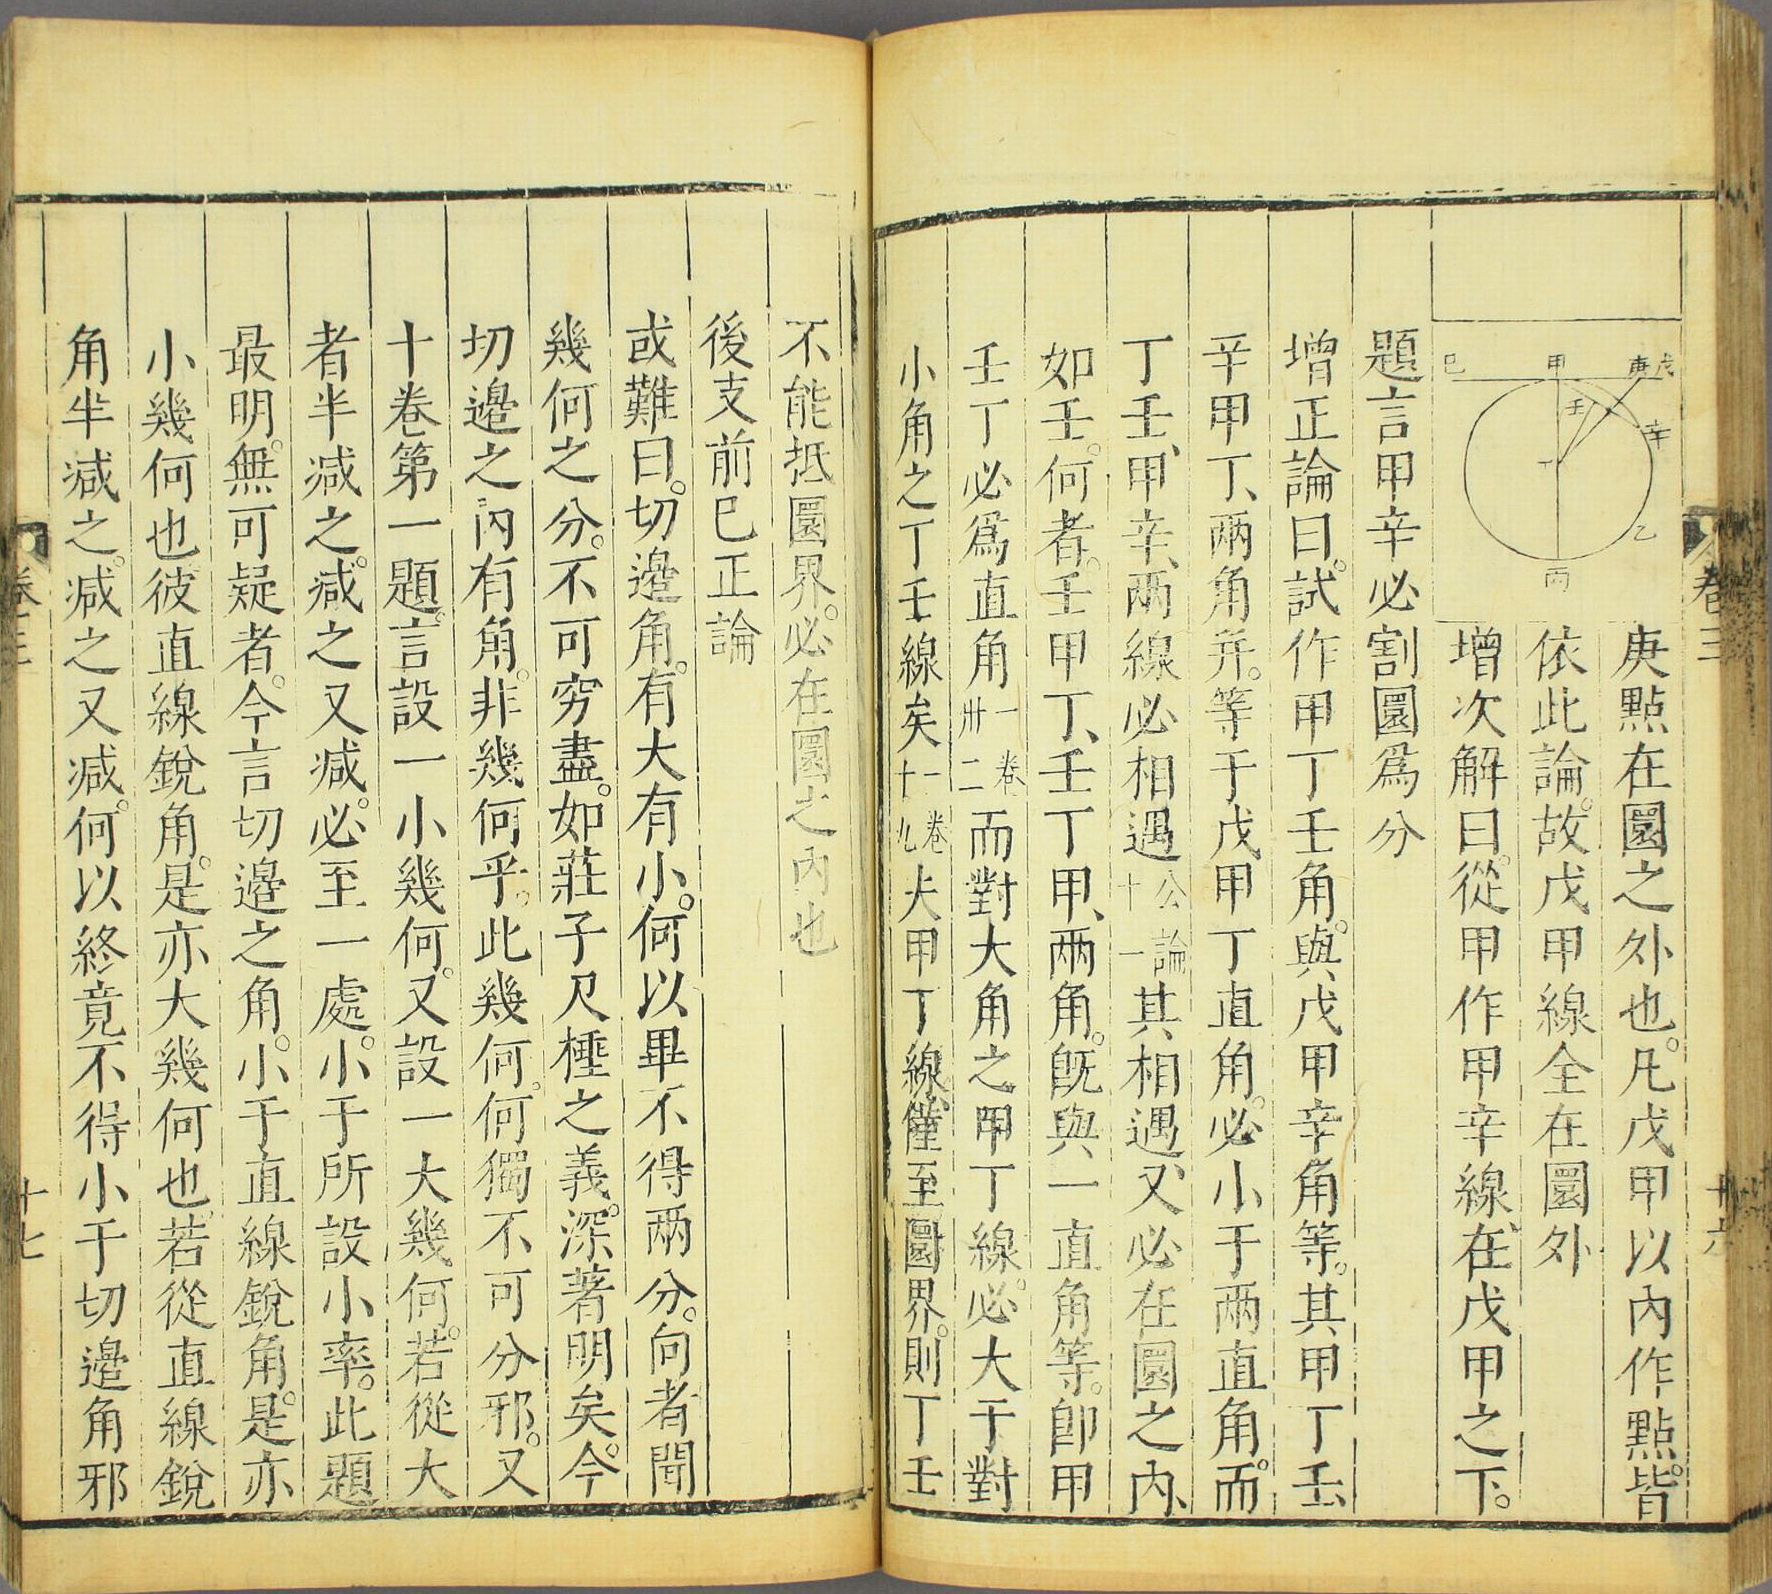 巳 甲 庚 戊
壬 辛
丁
乙
丙
庚點在圜之外也。凡戊甲以內作點。皆
依此論。故戊甲線全在圜外
增次解曰。從甲作甲辛線、在戊甲之下。
題言甲辛必割圜爲分
增正論曰。試作甲丁壬角。與戊甲辛角等。其甲丁壬、
辛甲丁、兩角幷。等于戊甲丁直角。必小于兩直角。而
丁壬、甲辛、兩線必相遇公論十一其相遇、又必在圜之內、
如壬。何者。壬甲丁、壬丁甲、兩角。旣與一直角等。卽甲
壬丁必爲直角一卷卅二而對大角之甲丁線。必大于對
小角之丁壬線矣一卷十九夫甲丁線、僅至圜界。則丁壬
卷三
十六
不能抵圜界。必在圜之內也
後支前巳正論
或難曰。切邉角。有大有小。何以畢不得兩分。向者聞
幾何之分。不可穷盡。如莊子尺棰之義。深著明矣。今
切邉之內有角。非幾何乎。此幾何。何獨不可分邪。又
十卷第一題。言設一小幾何。又設一大幾何。若從大
者半减之。减之又减。必至一處。小于所設小率。此題
最明。無可疑者。今言切邉之角。小于直線銳角。是亦
小幾何也。彼直線銳角。是亦大幾何也。若從直線銳
角半减之。减之又减。何以終竟不得小于切邉角邪
卷三
十七